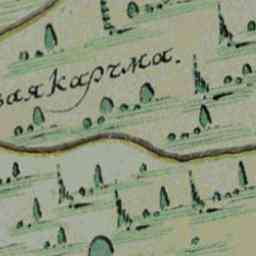 вая карчма.